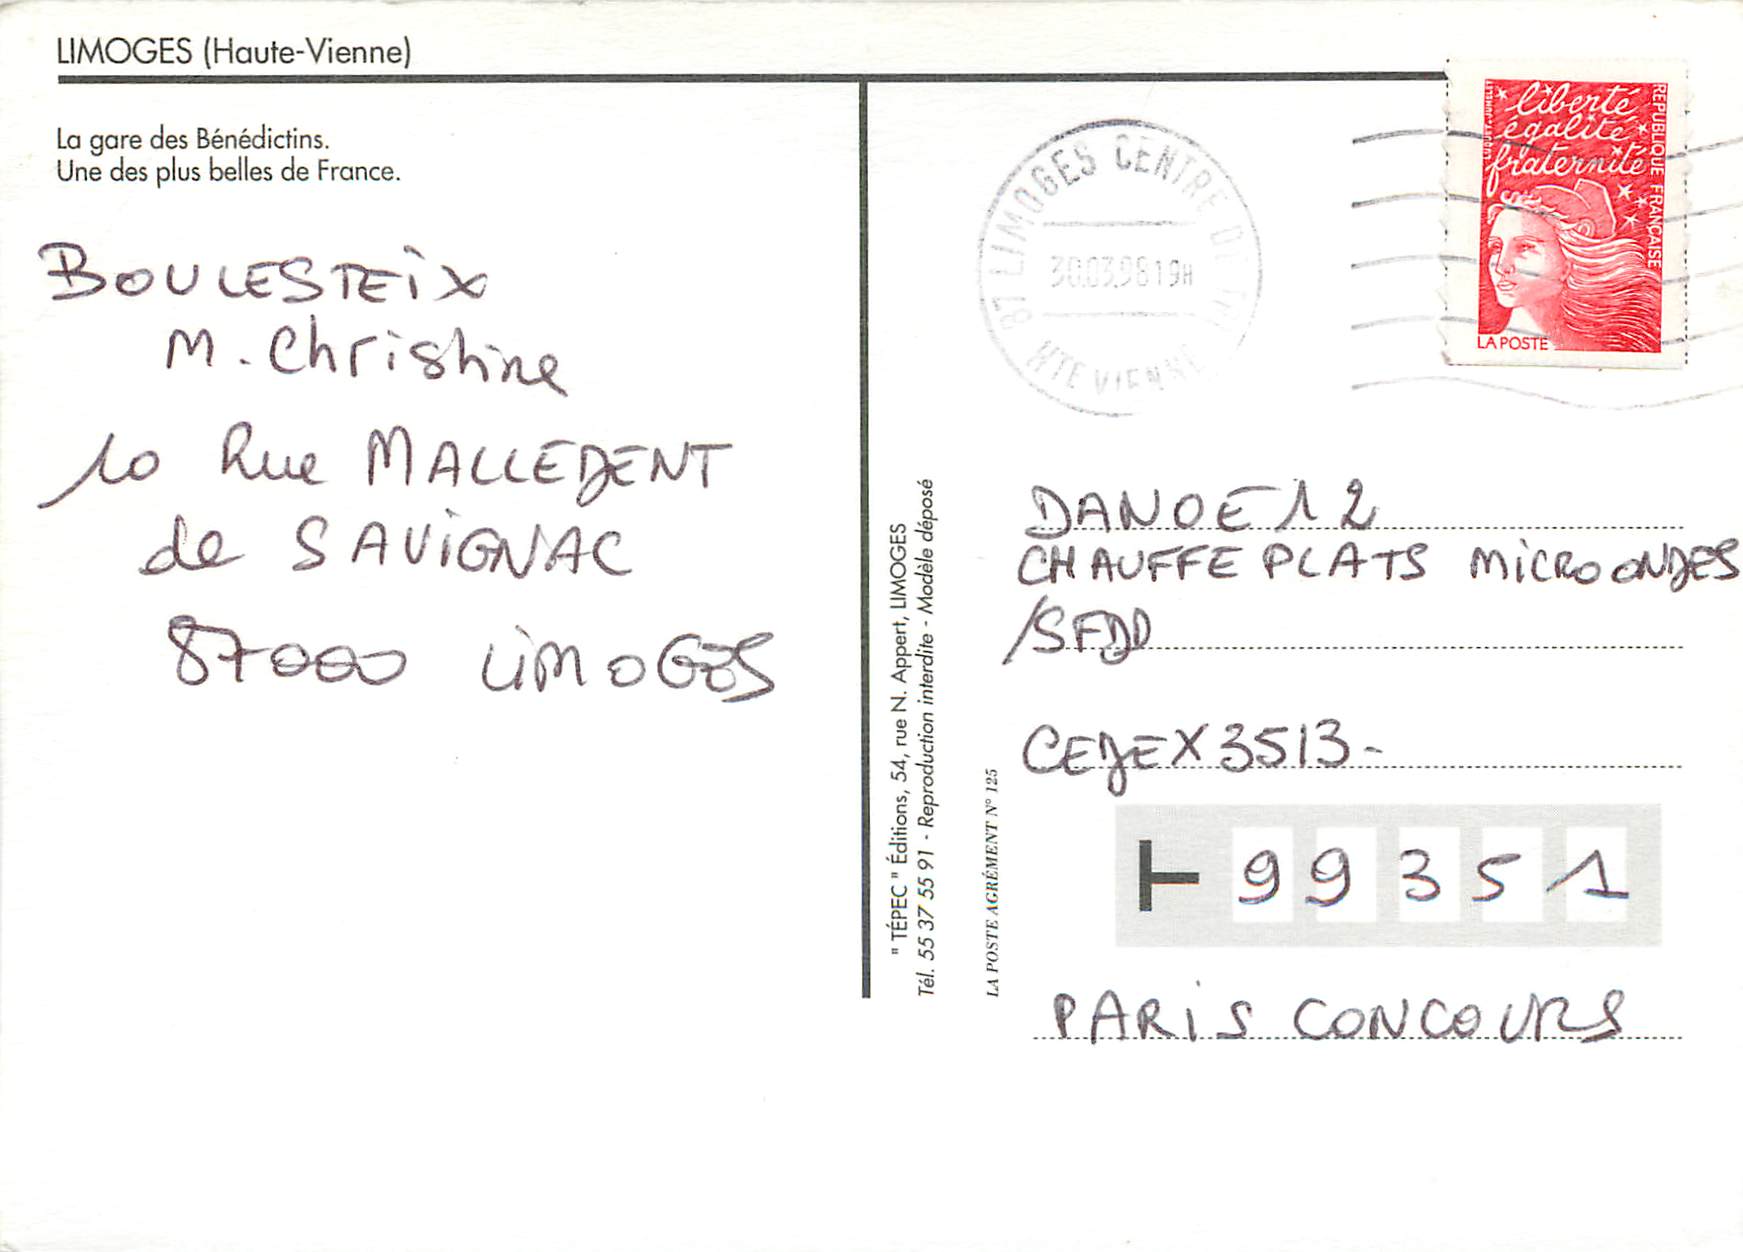 LIMOGES (Haute-Vienne)
La gare des Bénédictins.
Une des plus belles de France.
BOULESTEiX
M. Christine
10 Rue MALLEDENT
de SAViGNAC
87000 LiMOGES
" TÉPEC " Éditions, 54, rue N. Appert, LIMOGES
Tél. 55 37 55 91 - Reproduction interdite - Modèle déposé
LA POSTE AGRÉMENT N° 125
87 LIMOGES CENTRE DE TRI
30.03.98 19H
HTE VIENNE
liberté
égalité
fraternité
REPUBLIQUE FRANÇAISE
LA POSTE
DANOE 12
CHAUFFE PLATS MiCRO ONDES
/SFDD
CEDEX 3513-
99351
PARiS CONCOURS